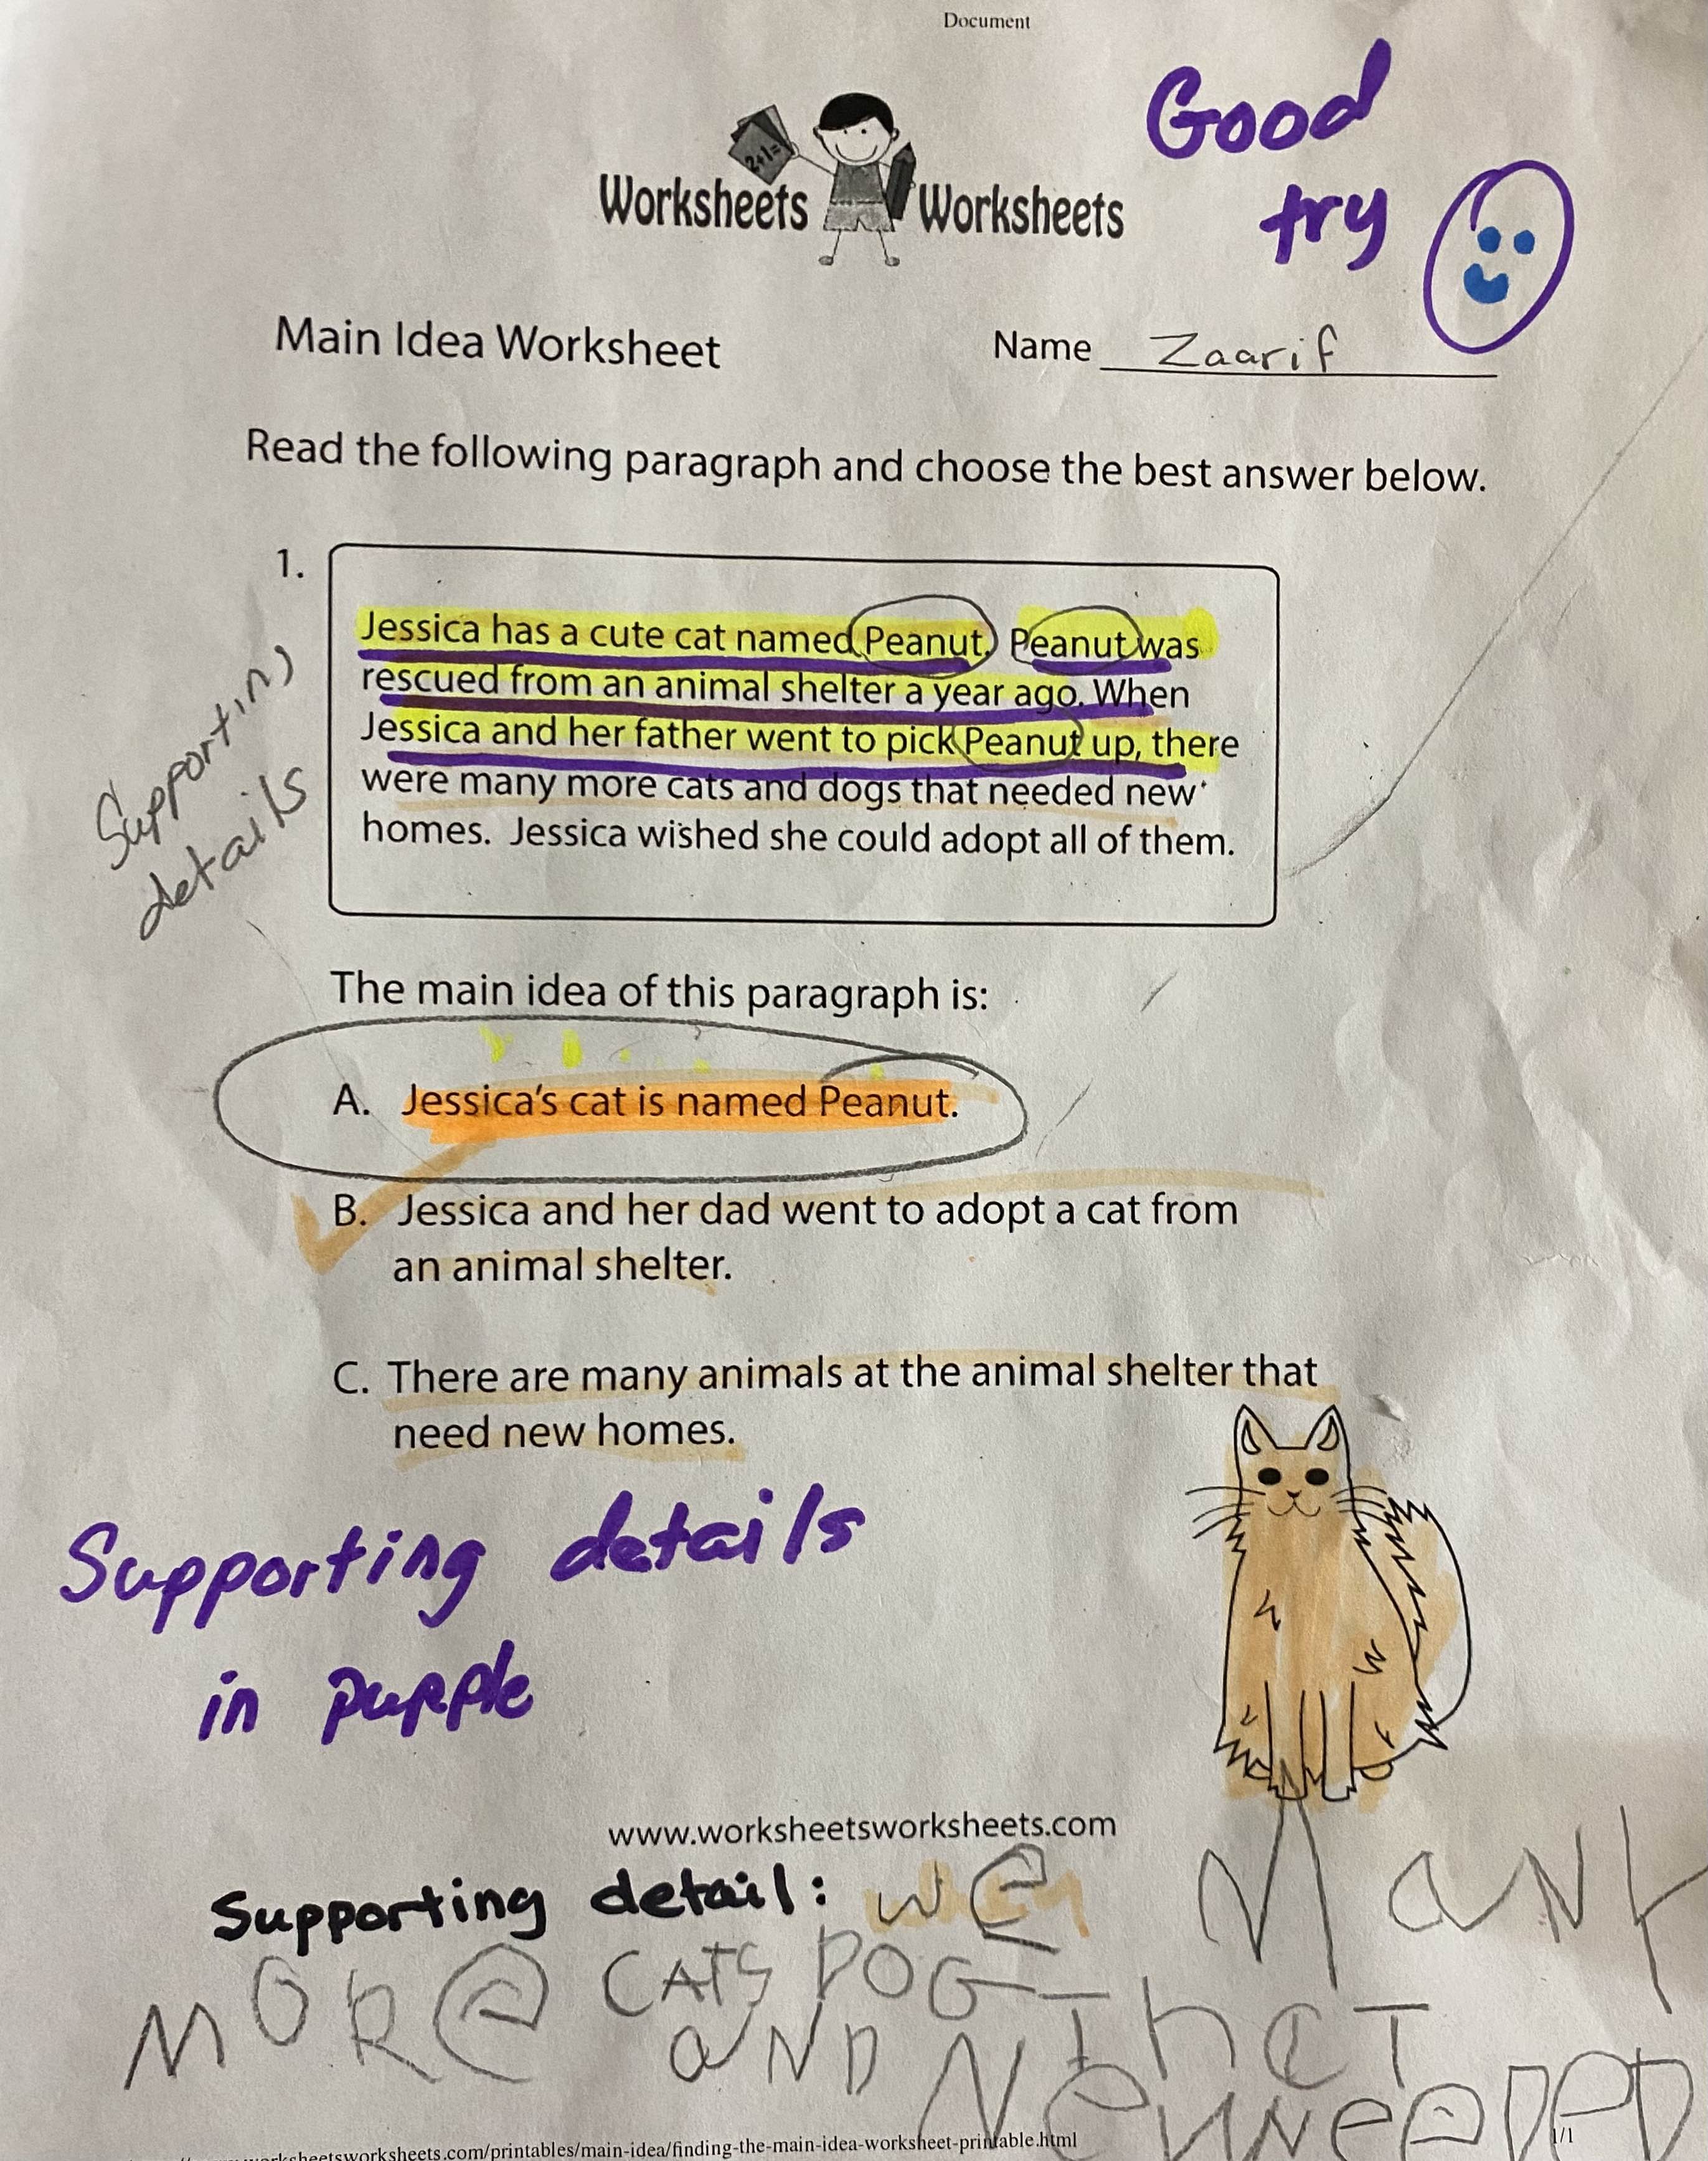 Document
Good
try
2+1=
Worksheets Worksheets
Main Idea Worksheet
Name Zaarif
Read the following paragraph and choose the best answer below.
1.
Jessica has a cute cat named Peanut. Peanut was
rescued from an animal shelter a year ago. When
Jessica and her father went to pick Peanut up, there
were many more cats and dogs that needed new
homes. Jessica wished she could adopt all of them.
Supporting
details
The main idea of this paragraph is:
A. Jessica's cat is named Peanut.
B. Jessica and her dad went to adopt a cat from
an animal shelter.
C. There are many animals at the animal shelter that
need new homes.
Supporting details
in purple
www.worksheetsworksheets.com
Supporting detail: we MaNY
MORe CATS DOG THaT
aND
rksheetsworksheets.com/printables/main-idea/finding-the-main-idea-worksheet-printable.html
1/1